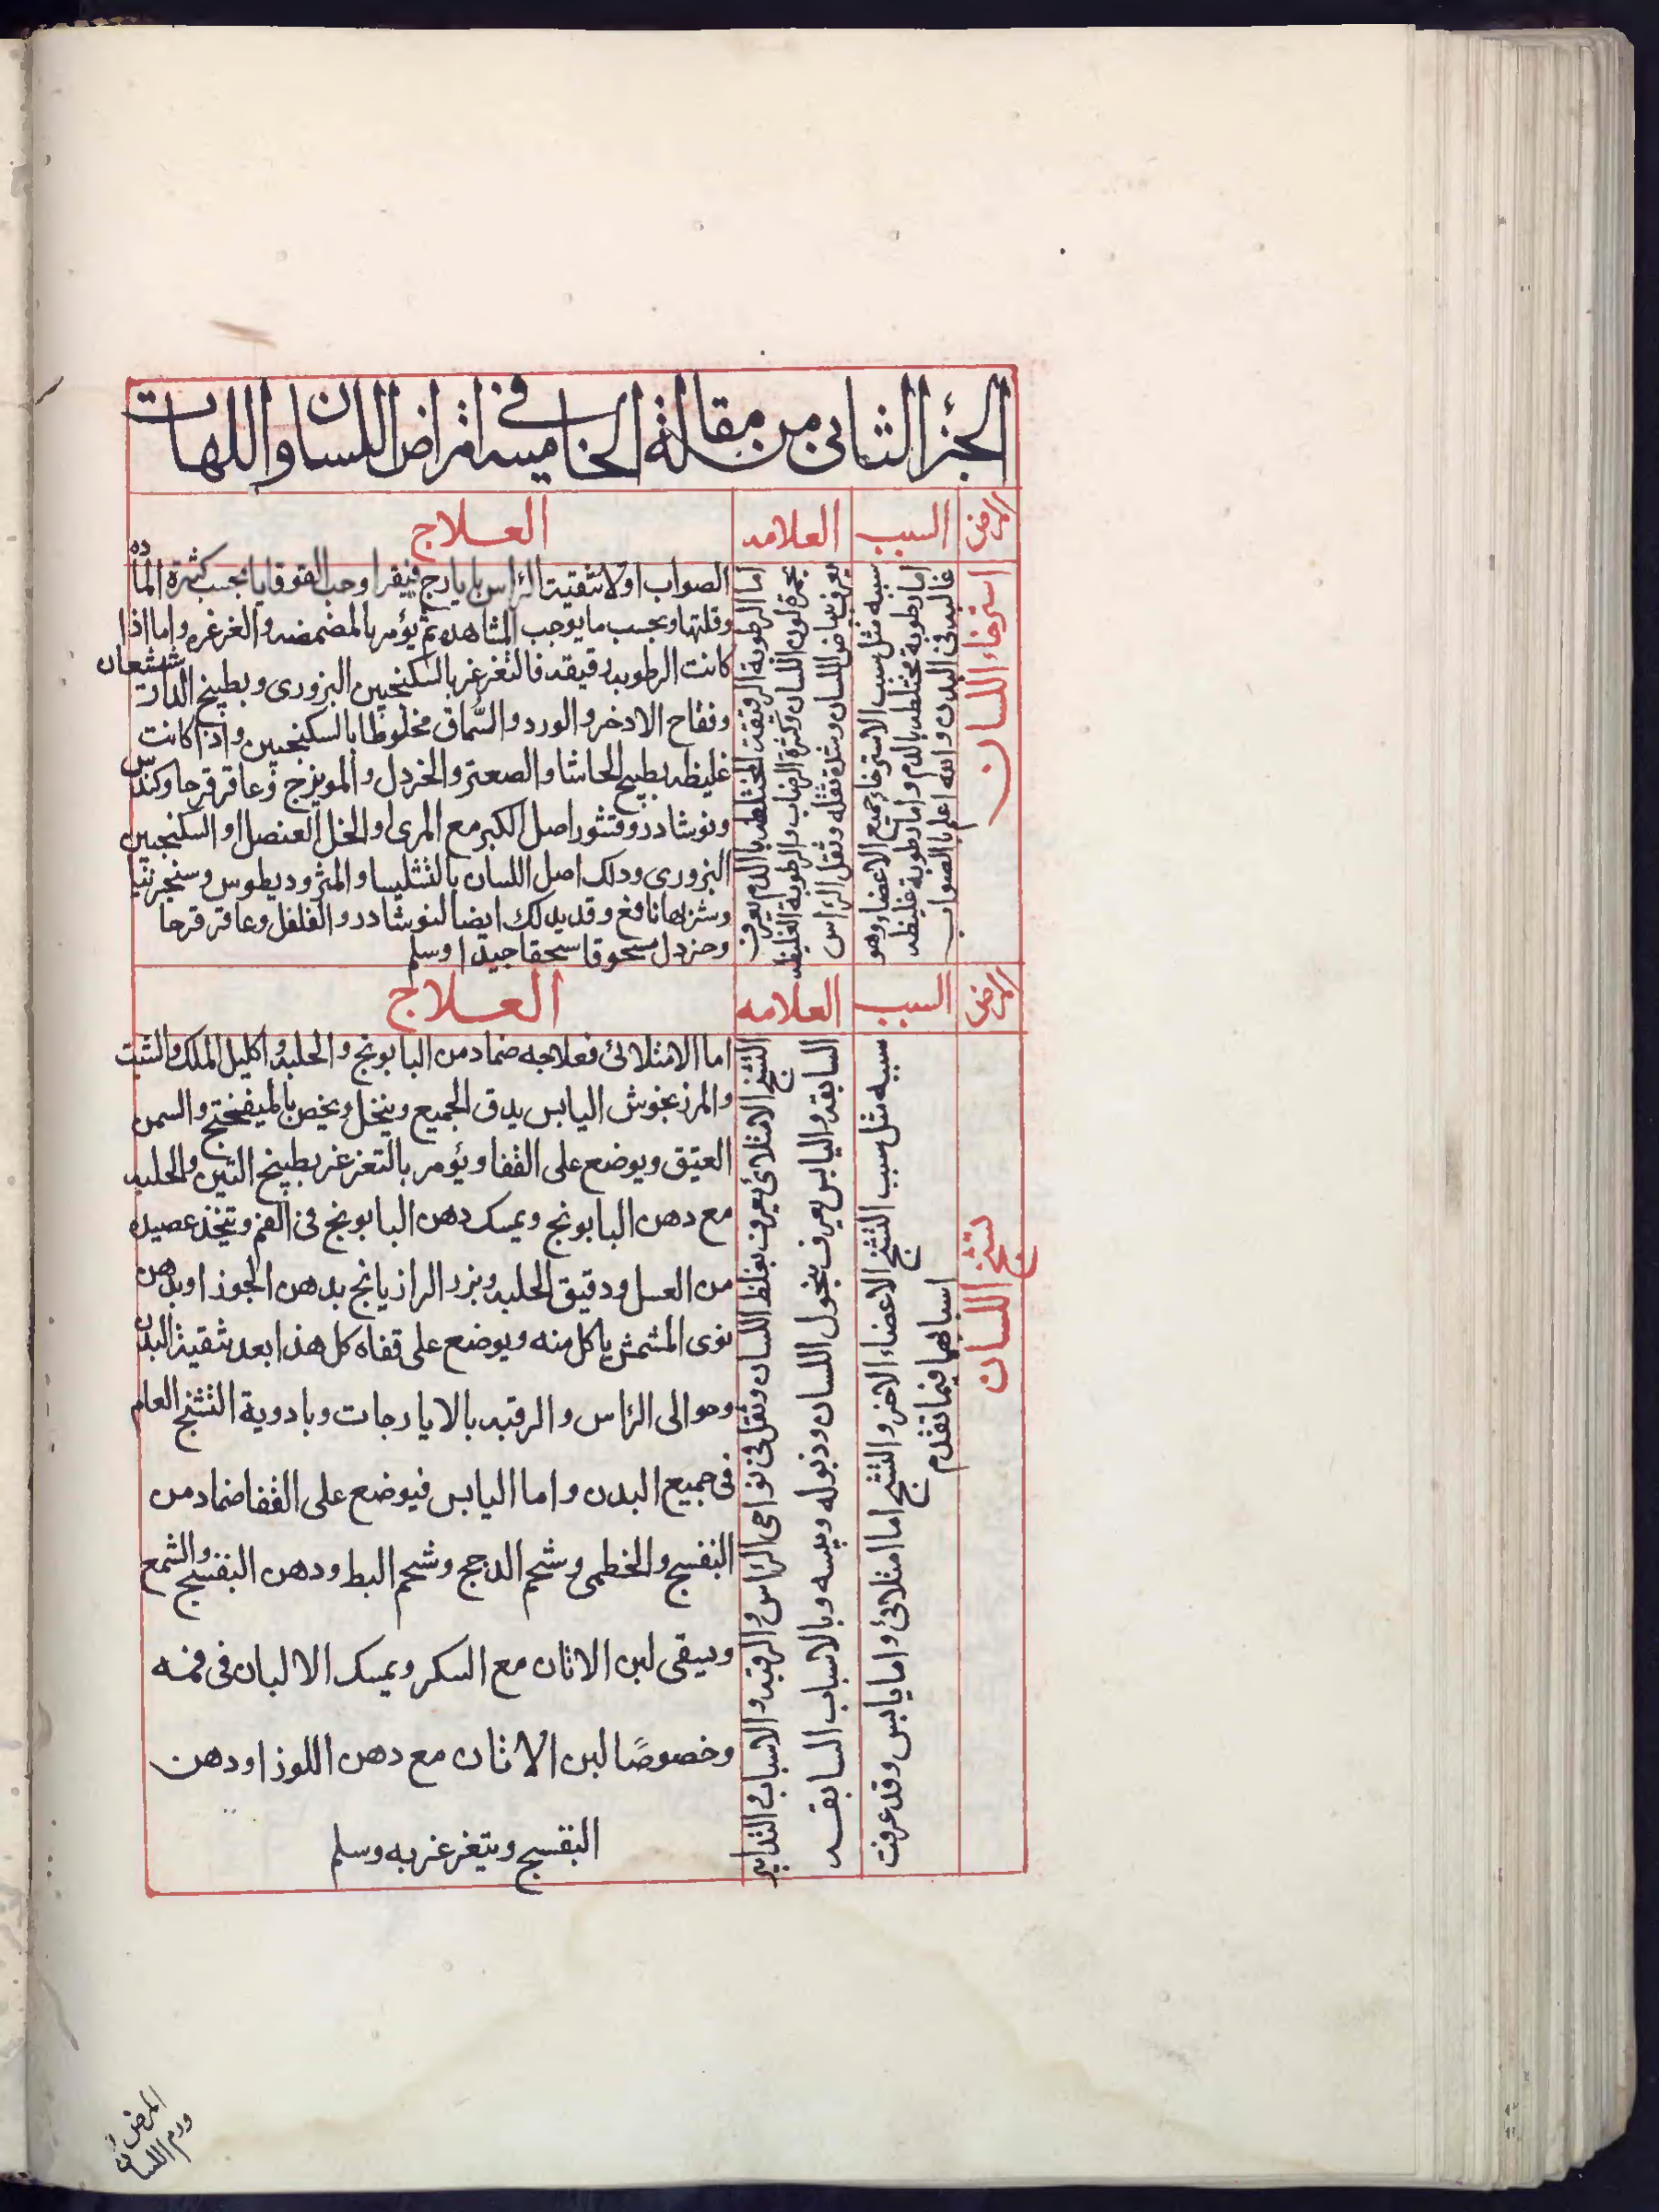 الجزء الثانى من مقالة الخامسه فى امراض اللسان واللهات
المرض
السبب
العلامه
العلاج
استرخاء اللسان
سببه مثل سبب الاسترخاء جميع الاعضاء وهو
اما رطوبة مختلطه بالدم واما رطوبة غليظه
غالبه فى البدن والله اعلم بالصواب
اما الرطوبة الرقيقة المختلطه بالدم يعرف
بحمرة لون اللسان وكثرة الرضاب والرطوبة الغليظه
يعرف ببياض اللسان وشدة ثقله وثقل الرأس
الصواب اولا تنقية الرأس بايارج فيقرا وحب القوقايا بحسب كثرة المادة
وقلتها وبحسب ما يوجب المشاهده ثم يؤمر بالمضمضه والغرغره واما اذا
كانت الرطوبه رقيقه فالتغرغر بالسكنجبين البزورى وبطبيخ الدارششعان
وفقاح الادخر والورد والسُّماق مخلوطا بالسكنجبين واذا كانت
غليظه بطبيخ الحاشا والصعتر والخردل والمويزج وعاقرقرحا وكندس
ونوشادر وقشور اصل الكبر مع المرى او الخل العنصل او السكنجبين
البزورى ودلك اصل اللسان بالشليسا والمثروديطوس وسنجرنيا
وشربها نافع وقد يدلك ايضا لنوشادر والفلفل وعاقرقرحا
وخردل مسحوقا سحقا جيدا وسلم
المرض
السبب
العلامه
العلاج
تشنج اللسان
سببه مثل سبب التشنج الاعضاء الاخر والتشنج اما امتلائى واما يابس وقد عرفت
اسبابهما فيما تقدم
التشنج الامتلائى يعرف بغلظ اللسان وثقل فى نواحى الرأس والرقبه والاسباب والتدابير
السابقه واليابس يعرف بنحول اللسان وذبوله ويبسه وبالاسباب السابقه
اما الامتلائى فعلاجه ضماد من البابونج والحلبه واكليل الملك والشبت
والمرزنجوش اليابس يدق الجميع وينخل ويخص بالميفختج والسمن
العتيق ويوضع على القفا ويؤمر بالتغرغر بطبيخ التين والحلبه
مع دهن البابونج ويمسك دهن البابونج فى الفم ويتخذ عصيده
من العسل ودقيق الحلبه وبزر الرازيانج بدهن الجوز او بدهن
نوى المشمش ياكل منه ويوضع على قفاه كل هذا بعد تنقية البدن
وحوالى الرأس والرقبه بالايارجات وبادوية التشنج العام
فى جميع البدن واما اليابس فيوضع على القفا ضماد من
البنفسج والخطمى وشحم الدجج وشحم البط ودهن البنفسج والشمع
ويسقى لبن الاتان مع السكر ويمسك الالبان فى فمه
وخصوصًا لبن الاتان مع دهن اللوز او دهن
البنفسج ويتغرغر به وسلم
المرض
ورم اللسان